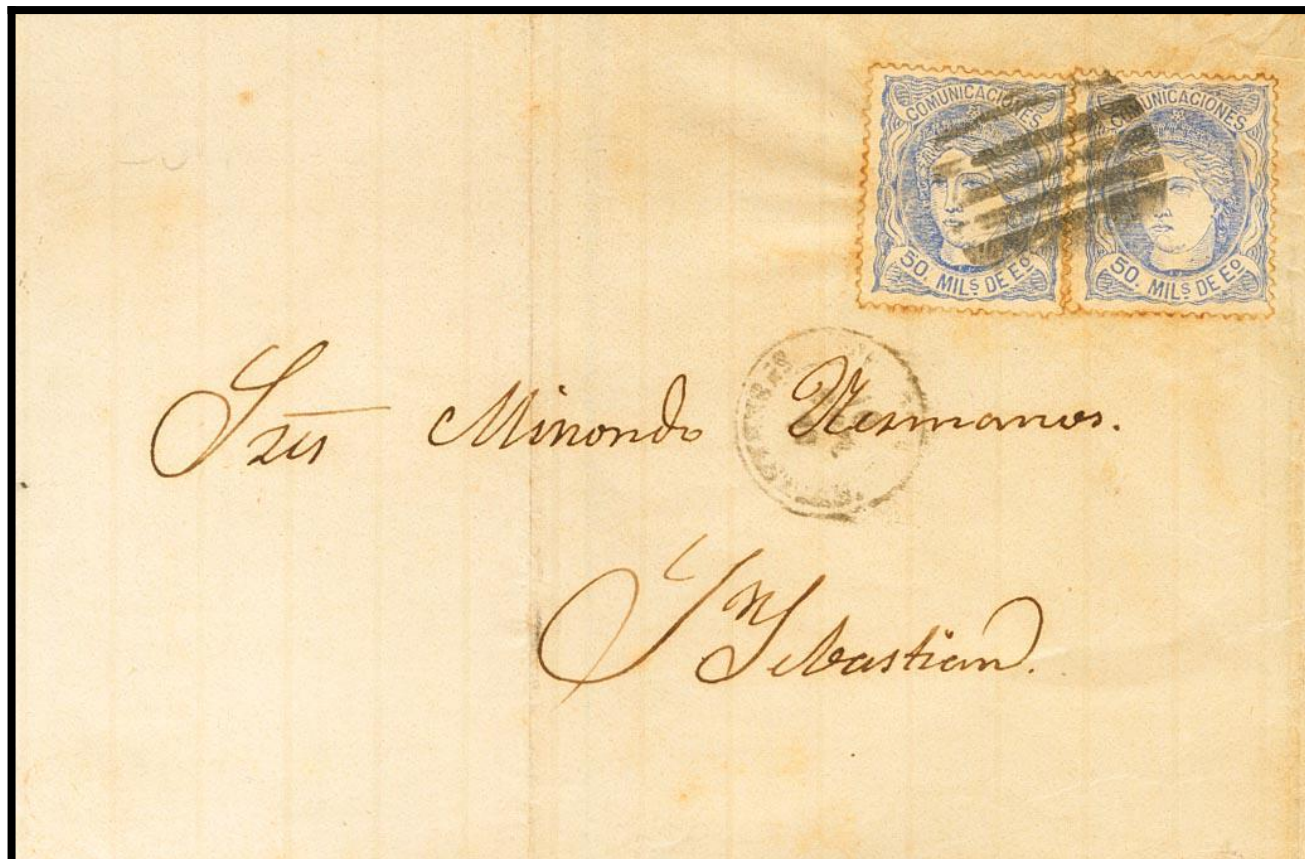 COMUNICACIONES
50. MILS DE Eº
COMUNICACIONES
50. MILS DE Eº
Sres Minondo Hermanos.
Sn Sebastian.